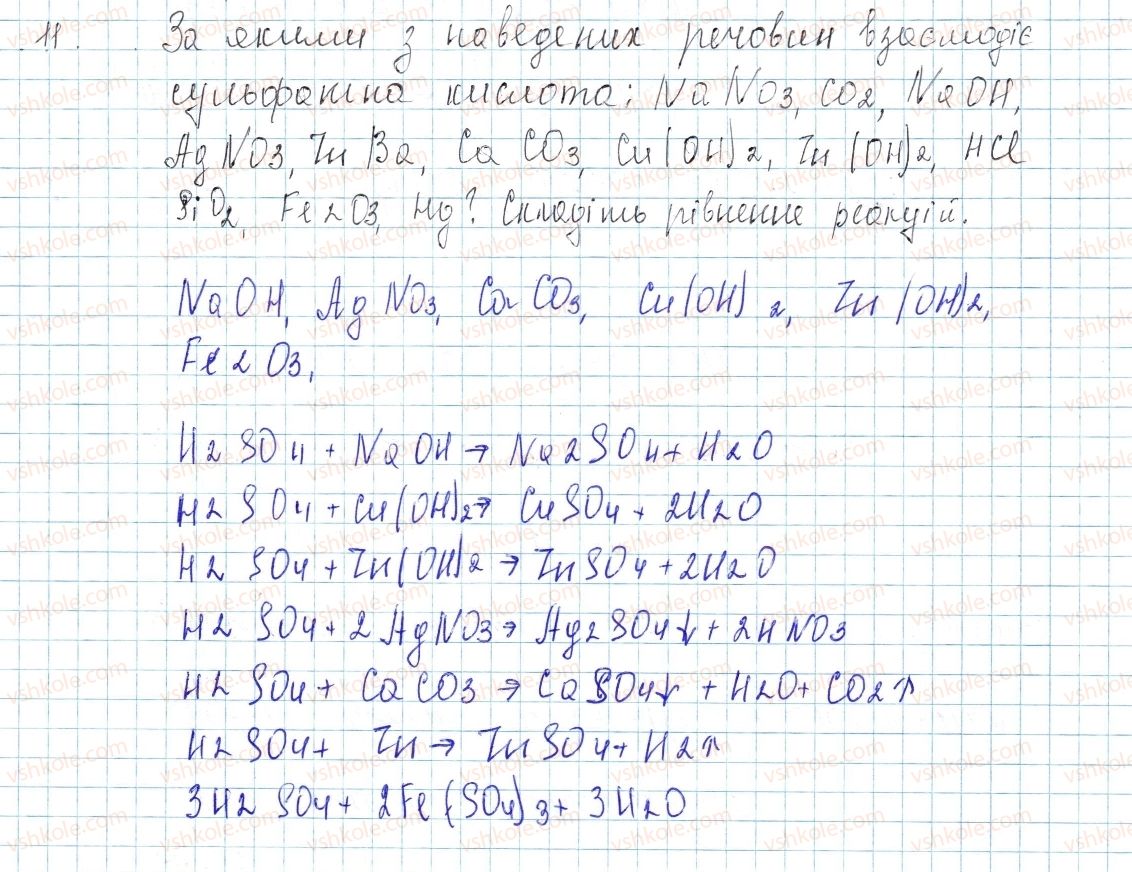 11. За якими з наведених речовин взаємодіє
сульфатна кислота: NaNO3, CO2, NaOH,
AgNO3, Zn Ba, CaCO3, Cu(OH)2, Zn(OH)2, HCl
SiO2, Fe2O3, Hg? Складіть рівненне реакцій.
NaOH, AgNO3, CaCO3, Cu(OH)2, Zn(OH)2,
Fe2O3,
H2SO4 + NaOH → Na2SO4 + H2O
H2SO4 + Cu(OH)2 → CuSO4 + 2H2O
H2SO4 + Zn(OH)2 → ZnSO4 + 2H2O
H2SO4 + 2AgNO3 → Ag2SO4↓ + 2HNO3
H2SO4 + CaCO3 → CaSO4↓ + H2O + CO2↑
H2SO4 + Zn → ZnSO4 + H2↑
3H2SO4 + 2Fe(SO4)3 + 3H2O